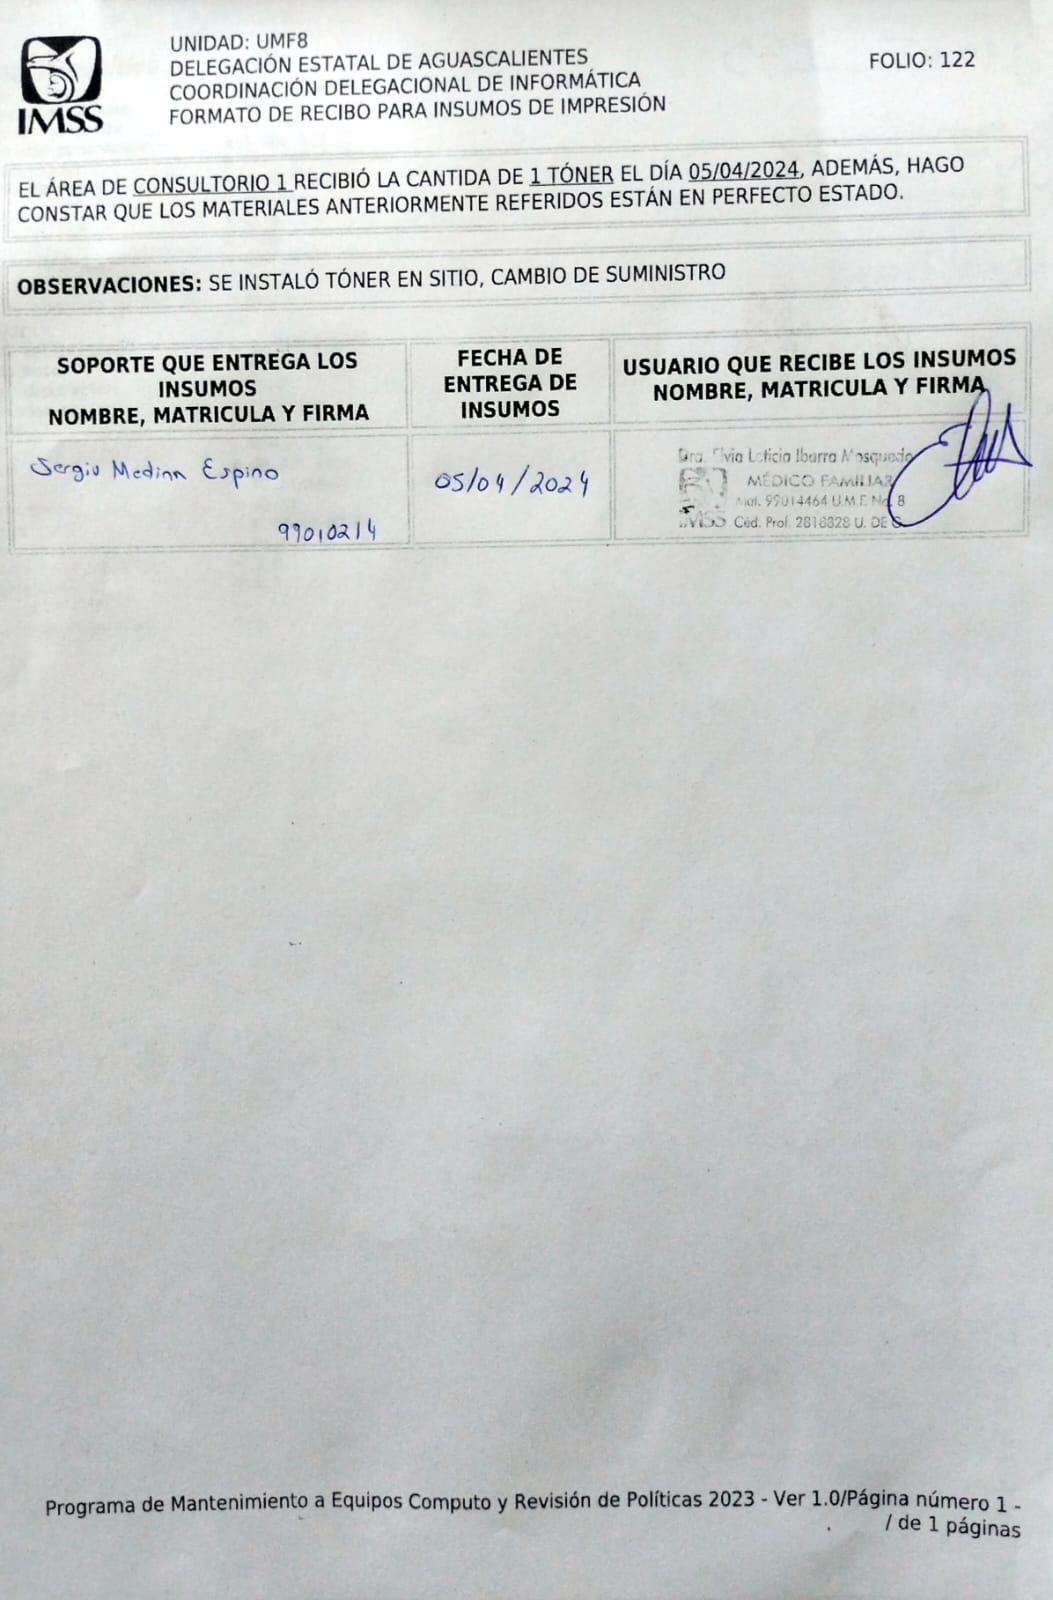 IMSS
UNIDAD: UMF8
DELEGACIÓN ESTATAL DE AGUASCALIENTES
COORDINACIÓN DELEGACIONAL DE INFORMÁTICA
FORMATO DE RECIBO PARA INSUMOS DE IMPRESIÓN
FOLIO: 122
EL ÁREA DE CONSULTORIO 1 RECIBIÓ LA CANTIDA DE 1 TÓNER EL DÍA 05/04/2024, ADEMÁS, HAGO
CONSTAR QUE LOS MATERIALES ANTERIORMENTE REFERIDOS ESTÁN EN PERFECTO ESTADO.
OBSERVACIONES: SE INSTALÓ TÓNER EN SITIO, CAMBIO DE SUMINISTRO
SOPORTE QUE ENTREGA LOS
INSUMOS
NOMBRE, MATRICULA Y FIRMA
FECHA DE
ENTREGA DE
INSUMOS
USUARIO QUE RECIBE LOS INSUMOS
NOMBRE, MATRICULA Y FIRMA
Sergio Medina Espino
99010214
05/04/2024
Dra. Elvia Leticia Ibarra Mosqueda
MÉDICO FAMILIAR
Mat. 99014464 U.M.F. No. 8
IMSS Céd. Prof. 2818828 U. DE
Programa de Mantenimiento a Equipos Computo y Revisión de Políticas 2023 - Ver 1.0/Página número 1 -
/ de 1 páginas